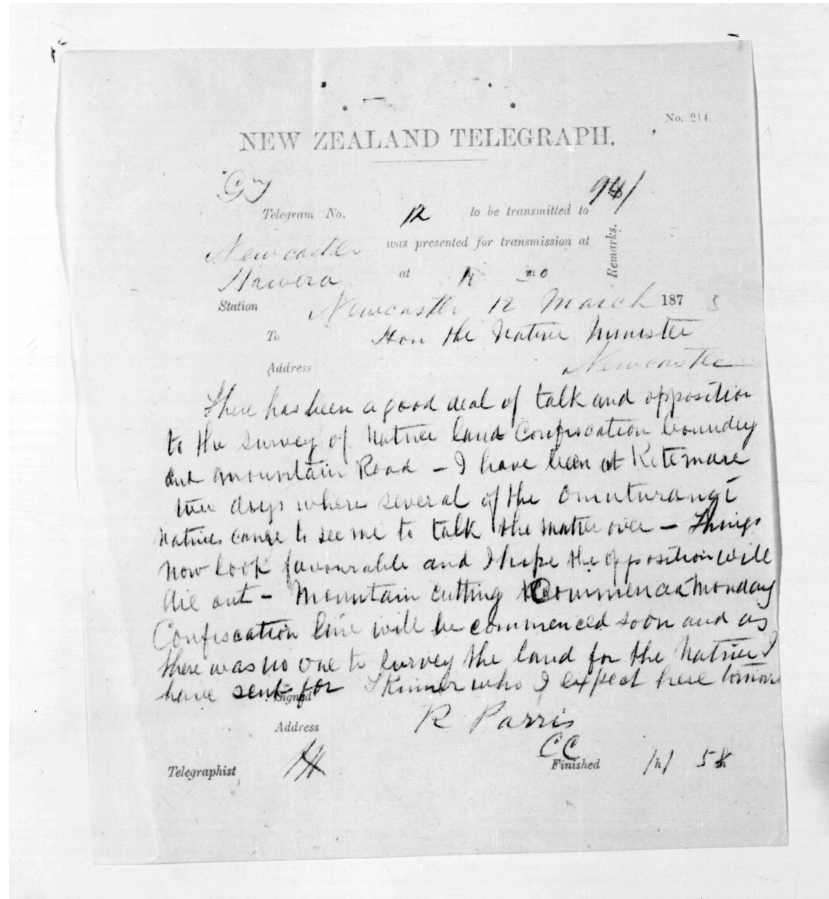 No. 214
NEW ZEALAND TELEGRAPH.
Telegram No. 12 to be transmitted to
Newcastle was presented for transmission at
Hawera at
Remarks.
Station Newcastle 12 March 187
To Hon the Native Minister
Address Newcastle
There has been a good deal of talk and opposition
to the survey of Native land Confiscation boundry
and mountain Road – I have been at Ketemare
two days where several of the Omuturangi
natives came to see me to talk the matter over – Things
now look favourable and I hope the opposition will
die out – Mountain cutting Commenced Monday
Confiscation line will be commenced soon and as
there was no one to survey the land for the Natives I
have sent for Skinner who I expect here
Signed
R Parris
Address
CC
Telegraphist
Finished